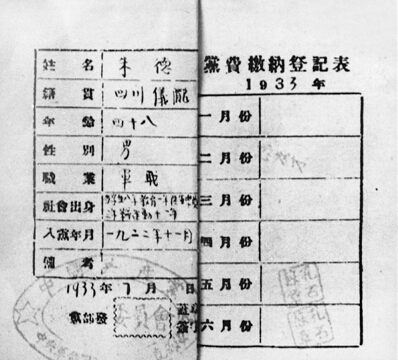 姓名 朱德
籍貫 四川儀隴
年齡 四十八
性別 男
職業 軍戰
社會出身
入黨年月 一九二二年十一月
備考
1933年7月 日
黨部發
黨費繳納登記表
1933年
一月份
二月份
三月份
四月份
五月份
六月份